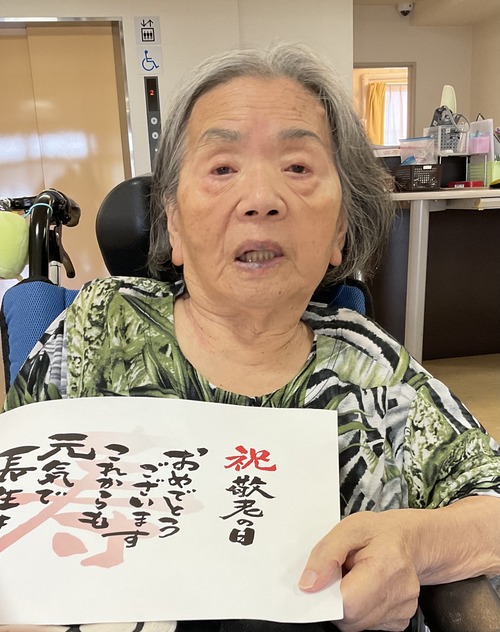 祝
敬老の日
おめでとう
ございます
これからも
元気で
長生き
寿
2